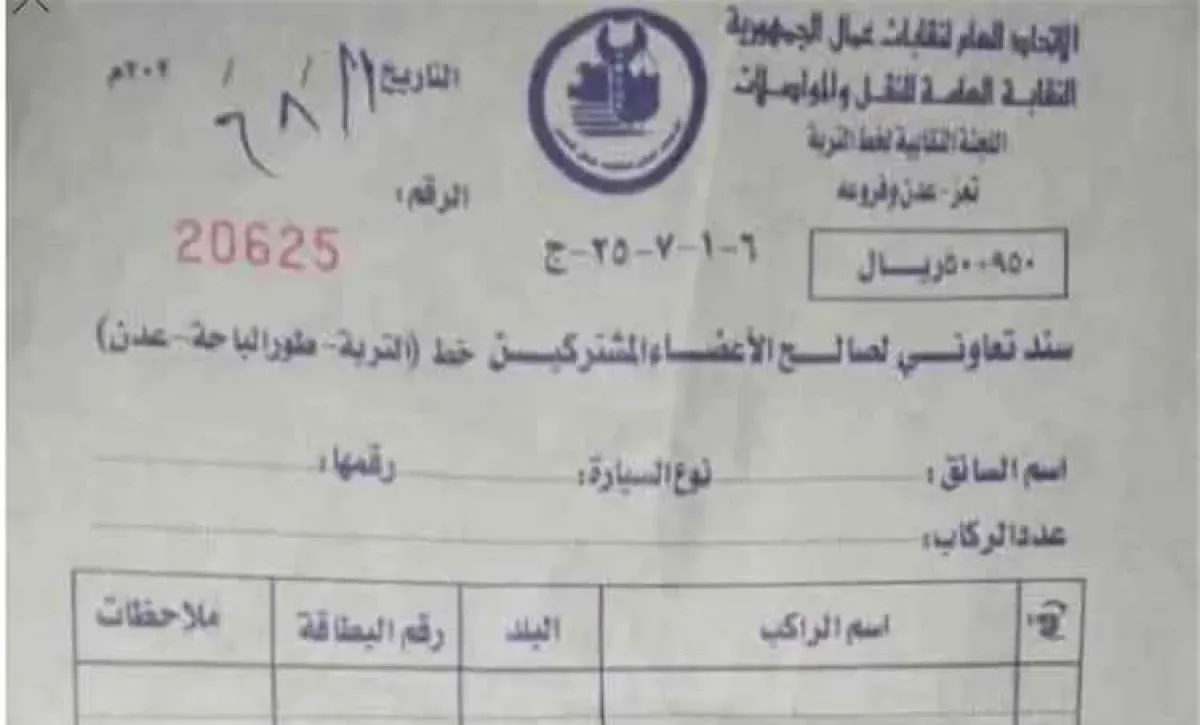 الإتحاد العام لنقابات عمال الجمهورية
النقابة العامة للنقل والمواصلات
اللجنة النقابية لخط التربة
تعز - عدن وفروعه
التاريخ / / ٢٠٢م
الرقم:
20625
٦-١-٧-٢٥-ج
٩٥٠+٥٠ريال
سند تعاوني لصالح الأعضاء المشتركين خط (التربة - طورالباحة - عدن)
اسم السائق: نوع السيارة: رقمها:
عدد الركاب:
اسم الراكب البلد رقم البطاقة ملاحظات